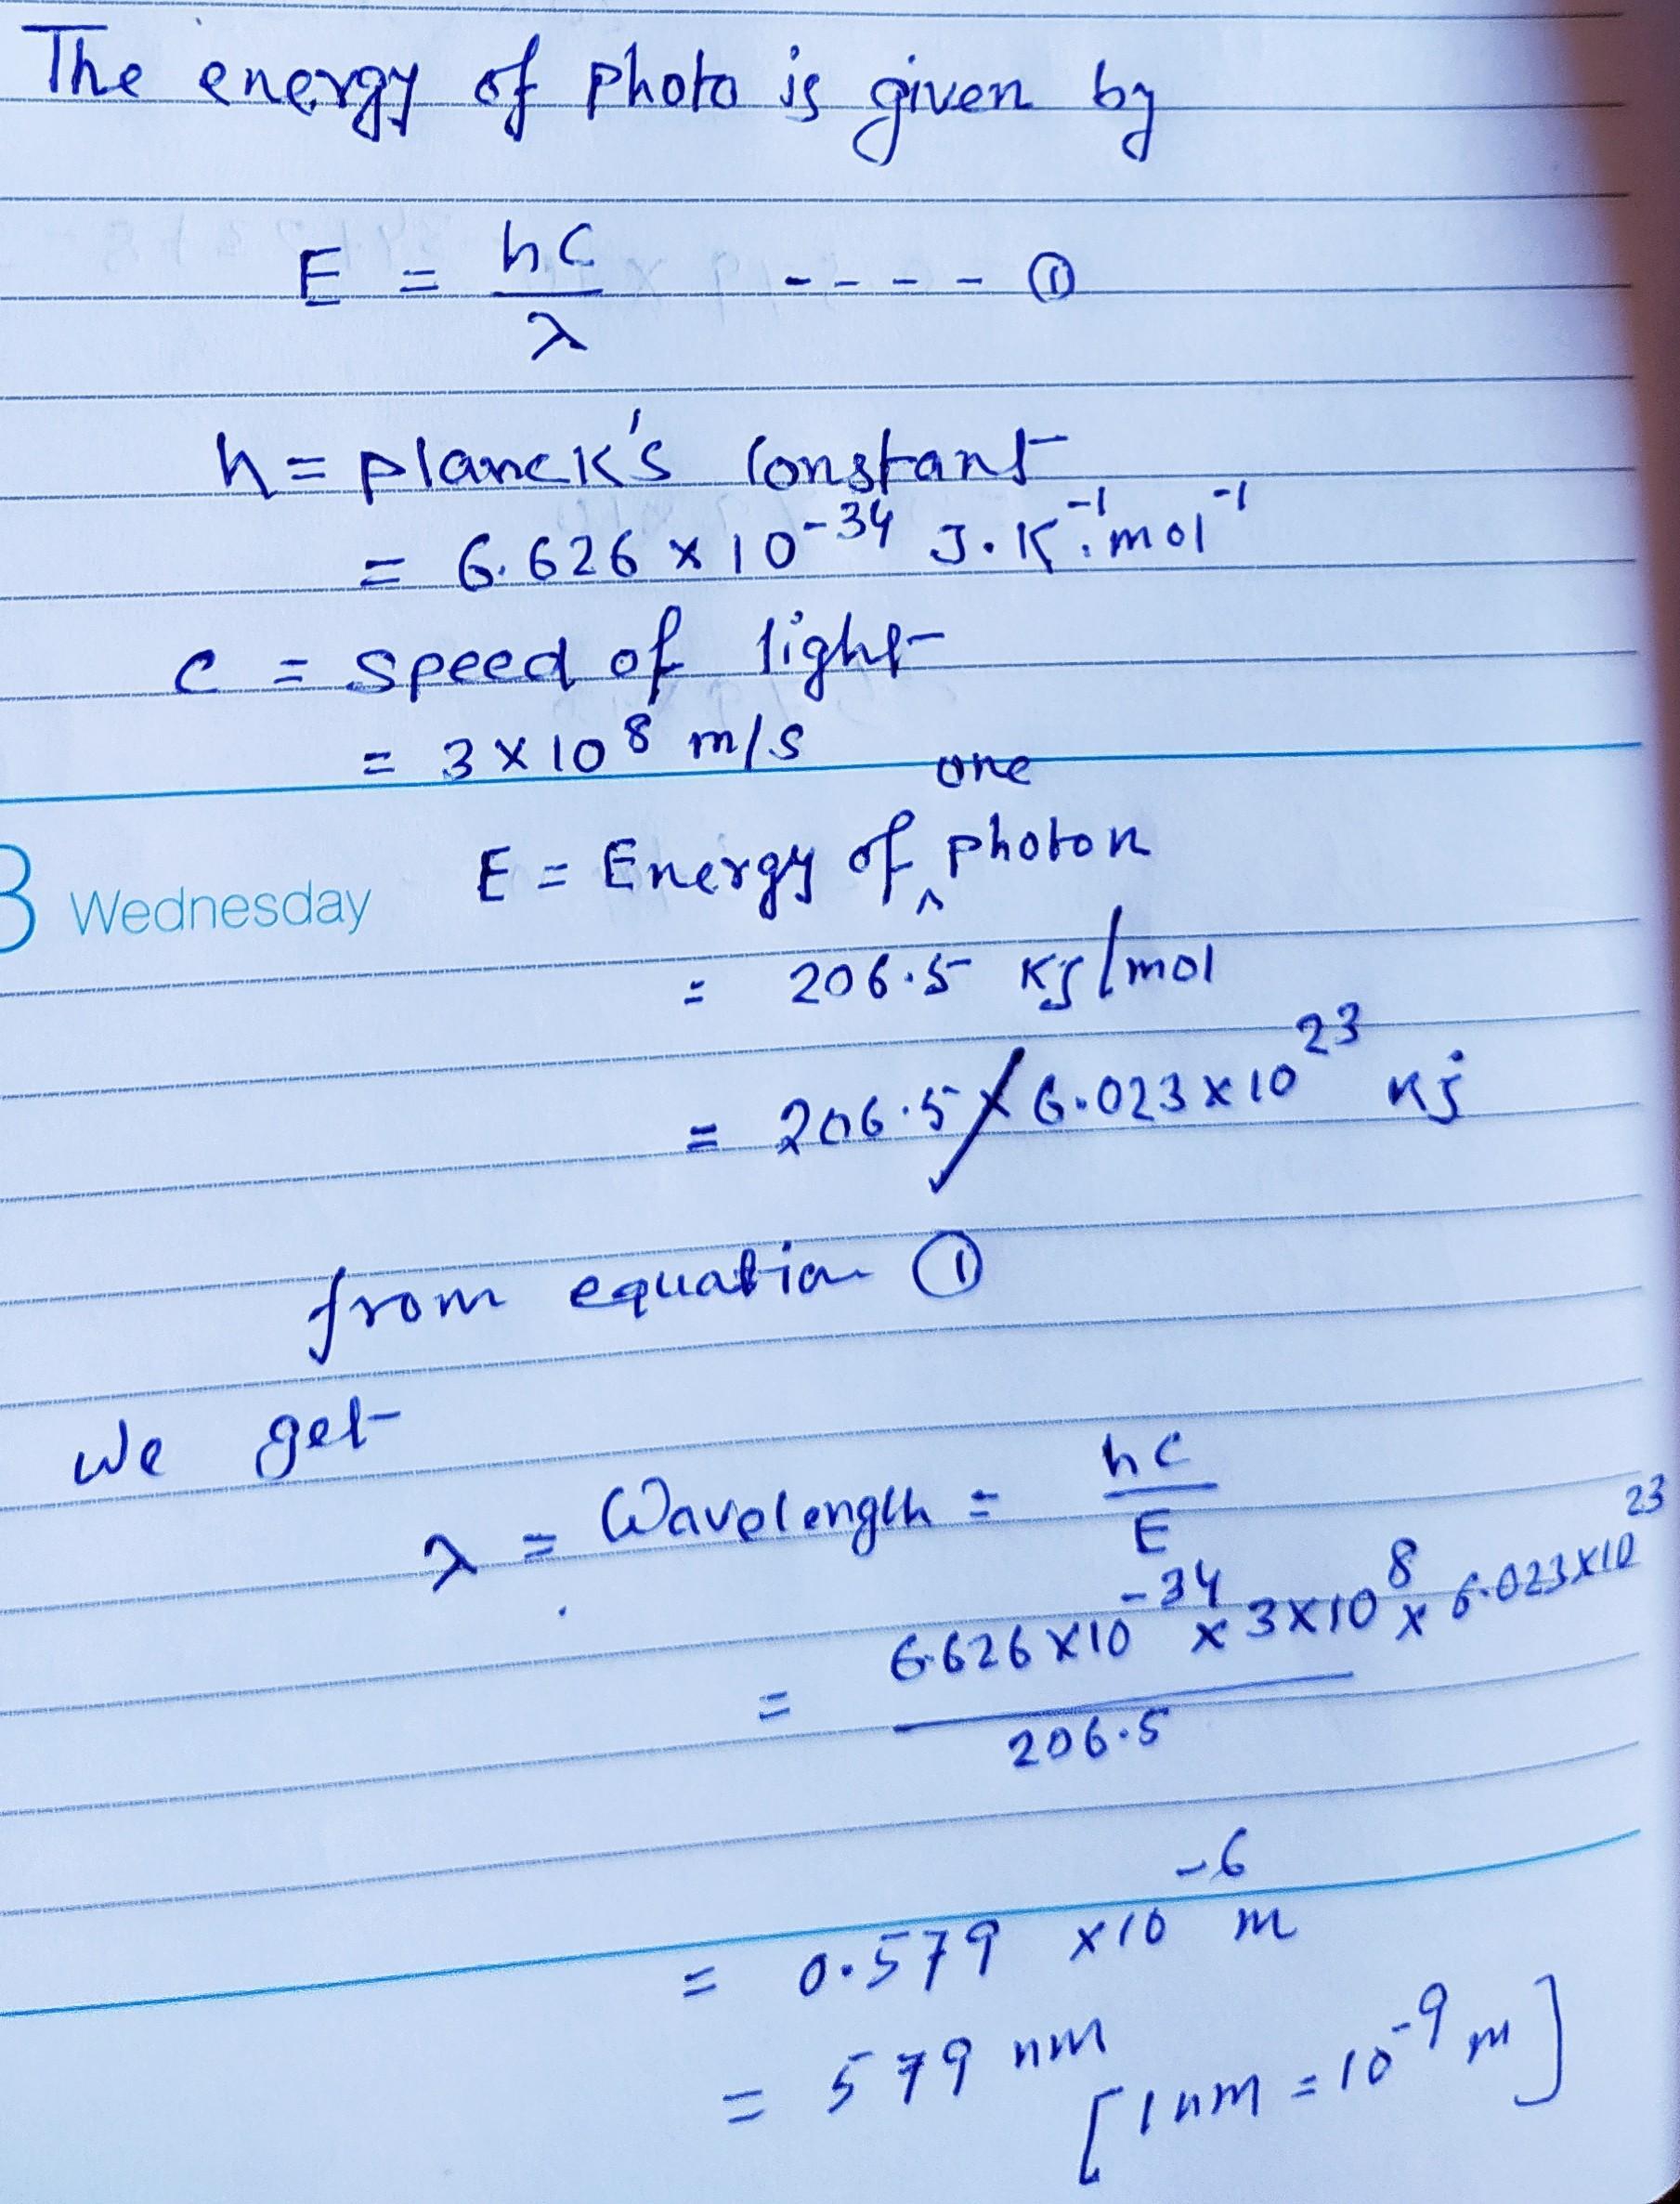 The energy of photo is given by
E = hc/λ ---- ①
h = planck's constant
= 6.626 × 10⁻³⁴ J.K⁻¹.mol⁻¹
c = speed of light
= 3 × 10⁸ m/s
3 Wednesday
E = Energy of ^one photon
= 206.5 KJ/mol
= 206.5 / 6.023 × 10²³ KJ
from equation ①
we get
λ = Wavelength = hc/E
= 6.626 × 10⁻³⁴ × 3 × 10⁸ × 6.023 × 10²³ / 206.5
= 0.579 × 10⁻⁶ m
= 579 nm
[1nm = 10⁻⁹ m]